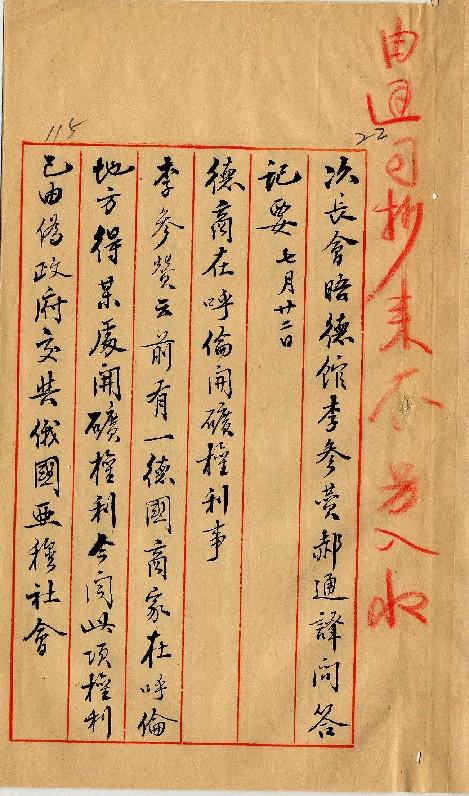 由通司抄来存另入收
22
次長會晤德館李參贊郝通譯問答
記要 七月廿二日
德商在呼倫開礦權利事
李參贊云前有一德國商家在呼倫
地方得某處開礦權利今闻此項權利
已由偽政府交與俄國亞穆社會
115